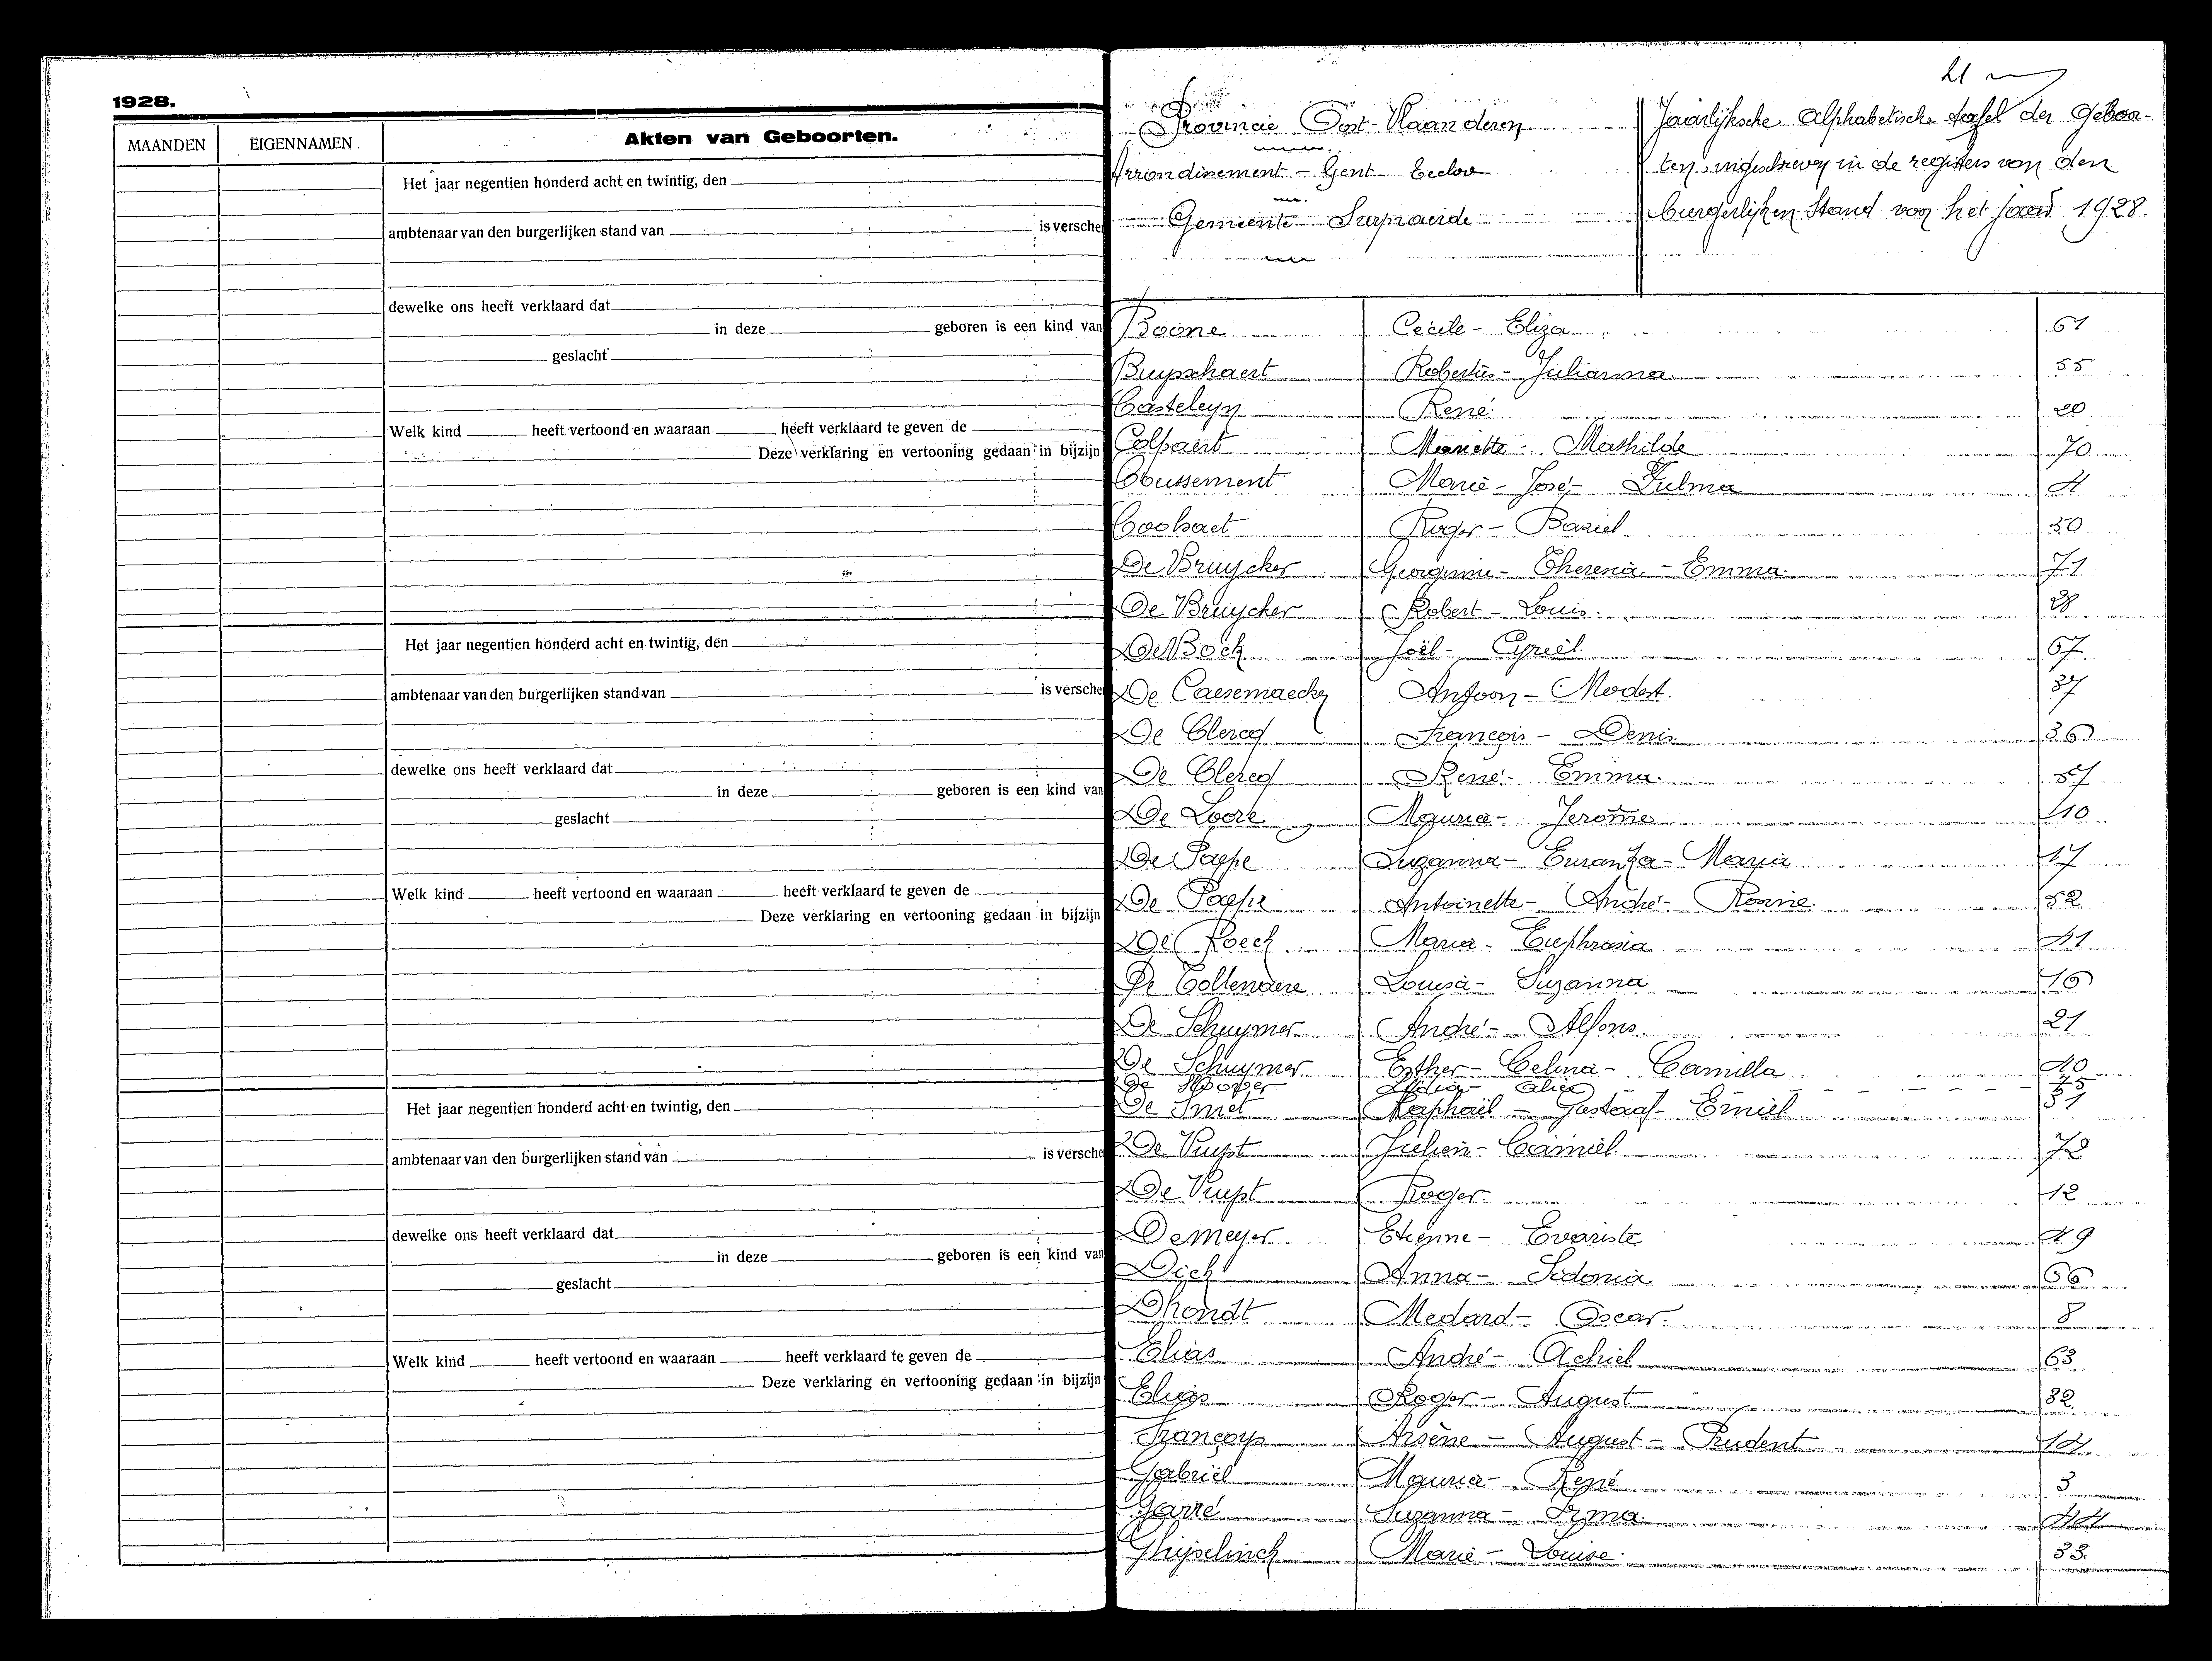 1928.
MAANDEN EIGENNAMEN. Akten van Geboorten.
Het jaar negentien honderd acht en twintig, den
ambtenaar van den burgerlijken stand van is versche
dewelke ons heeft verklaard dat
in deze geboren is een kind van
geslacht
Welk kind heeft vertoond en waaraan heeft verklaard te geven de
Deze verklaring en vertooning gedaan in bijzijn
Het jaar negentien honderd acht en twintig, den
ambtenaar van den burgerlijken stand van is versche
dewelke ons heeft verklaard dat
in deze geboren is een kind van
geslacht
Welk kind heeft vertoond en waaraan heeft verklaard te geven de
Deze verklaring en vertooning gedaan in bijzijn
Het jaar negentien honderd acht en twintig, den
ambtenaar van den burgerlijken stand van is versche
dewelke ons heeft verklaard dat
in deze geboren is een kind van
geslacht
Welk kind heeft vertoond en waaraan heeft verklaard te geven de
Deze verklaring en vertooning gedaan in bijzijn
Provincie Oost-Vlaanderen
Arrondinement - Gent - Eecloo
Gemeente
Jaarlijksche Alphabetische tafel der Geboor-
ten, ingeschreven in de registers van den
burgerlijken Stand voor het jaar 1928.
Boone Cecile - Eliza 61
Buysschaert Robertus - Julianna 55
Casteleyn René 20
Colpaert Mariette - Mathilde 70
Coussement Marie - José - Zulma 4
Coolsaet Roger - Baziel 50
De Bruycker Georgerine - Theresia - Emma 71
De Bruycker Robert - Louis 28
De Bock Joël - Cyriel 67
De Caesemaecker Antoon - Modest 37
De Clercq François - Denis 36
De Clercq René - Emma 57
De Loore Maurice - Jerome 10
De Paepe Suzanna - Maria 17
De Paepe Antoinette - André - Rosine 52
De Roeck Maria - Euphrasia 41
De Tollenaere Louisa - Suzanna 16
De Schuymer André - Alfons 21
De Schuymer Esther - Celina - Camilla 40
De Lidia - Alice 75
De Smet Raphaël - Gustaaf - Emiel 51
De Vuyst Julien - Camiel 72
De Vuyst Roger 12
Demeyer Etienne - Evariste 49
Dick Anna - Sidonia 66
Dhondt Medard - Oscar 8
Elias André - Achiel 63
Elias Roger - August 32
Françoys Arsène - August - Prudent 14
Gabriël Maurice - René 3
Garré Suzanna - Irma 44
Ghijselinck Marie - Louise 33